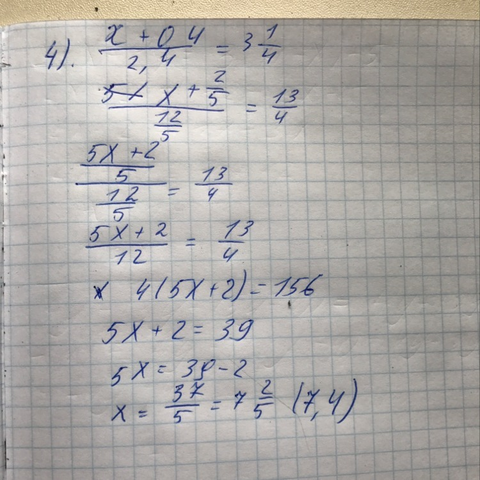 4). (x + 0 4)/(2,4) = 3 1/4
(x + 2/5)/(12/5) = 13/4
((5x + 2)/5)/(12/5) = 13/4
(5x + 2)/12 = 13/4
x 4(5x+2) = 156
5x + 2 = 39
5x = 39 - 2
x = 37/5 = 7 2/5 (7,4)